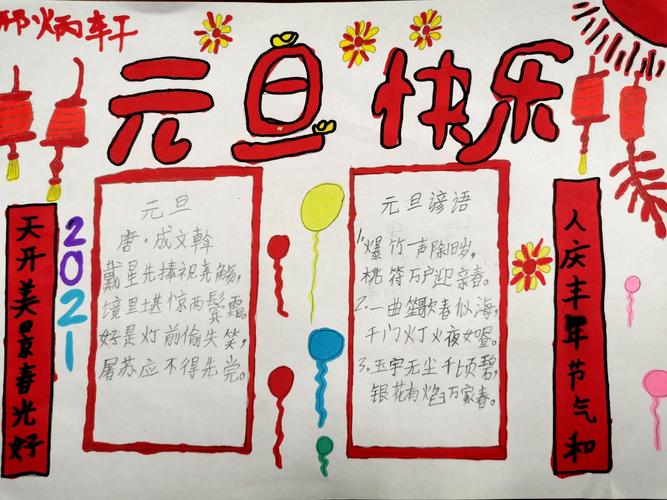 邢炳轩
元旦快乐
天开美景春光好
2021
元旦
唐·成文斡
戴星先捧祝尧觞,
境里堪惊两鬓霜。
好是灯前偷失笑,
屠苏应不得先尝。
元旦谚语
1、爆竹一声除旧岁,
桃符万户迎亲春。
2、一曲笙歌春似海,
千门灯火夜如昼。
3、玉宇无尘千顷碧,
银花有焰万家春。
人庆丰年节气和